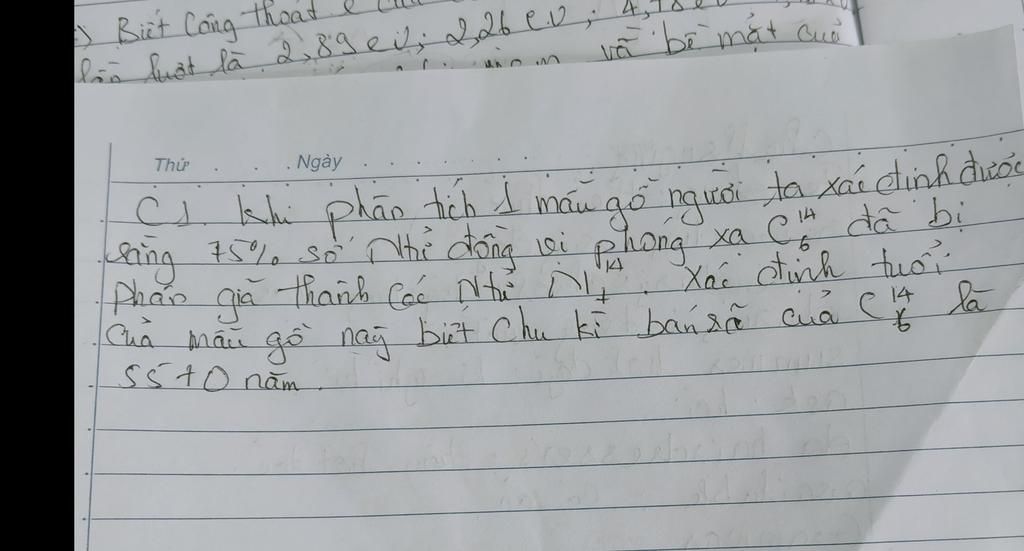 Biết Công thoát e
lần lượt là 2,89 eV; 2,26 eV; 4,78 eV
và bề mặt của
Thứ . . . . . Ngày . . . . . . . .
C1. Khi phân tích 1 mẫu gỗ người ta xác định được
rằng 75% số Ntử đồng vị phóng xạ C 14 6 đã bị
phân giã thành các Ntử N 14 7. Xác định tuổi
của mẫu gỗ nay biết Chu kì bán rã của C 14 6 là
5570 năm.